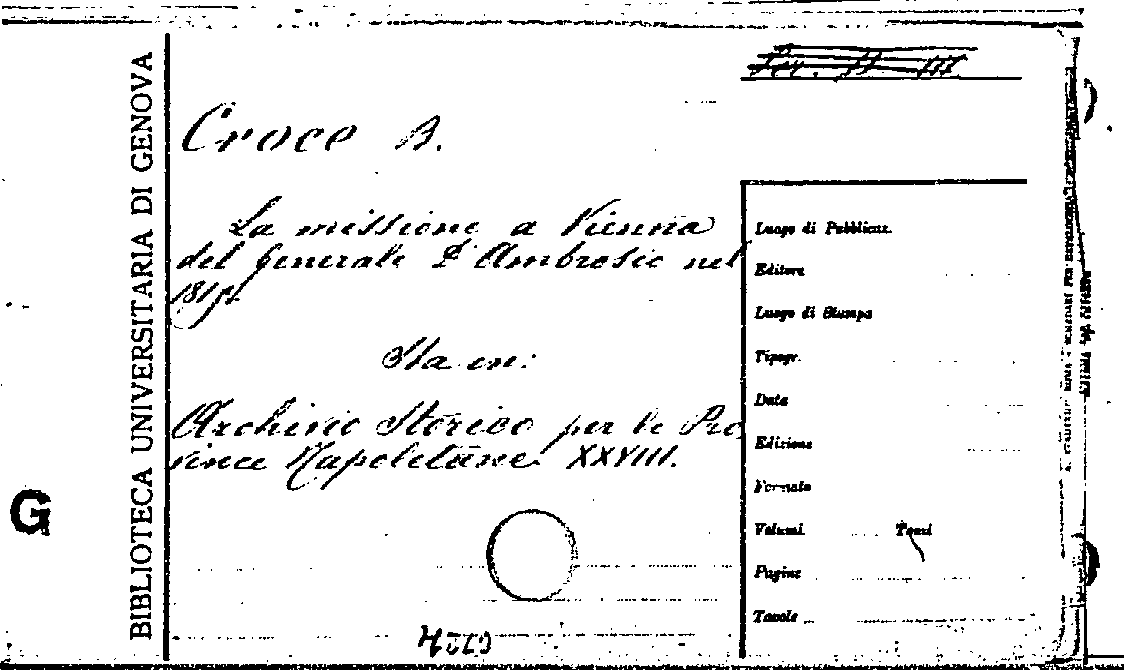 BIBLIOTECA UNIVERSITARIA DI GENOVA
G
Croce B.
La missione a Vienna
del generale D'Ambrosio nel
Sta in:
Archivio Storico per le Pro
vince Napoletane XXVIII.
Luogo di Pubblicaz.
Editore
Luogo di Stampa
Tipogr.
Data
Edizione
Formato
Volumi Tomi
Pagine
Tavole